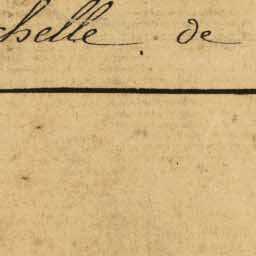 chelle . de